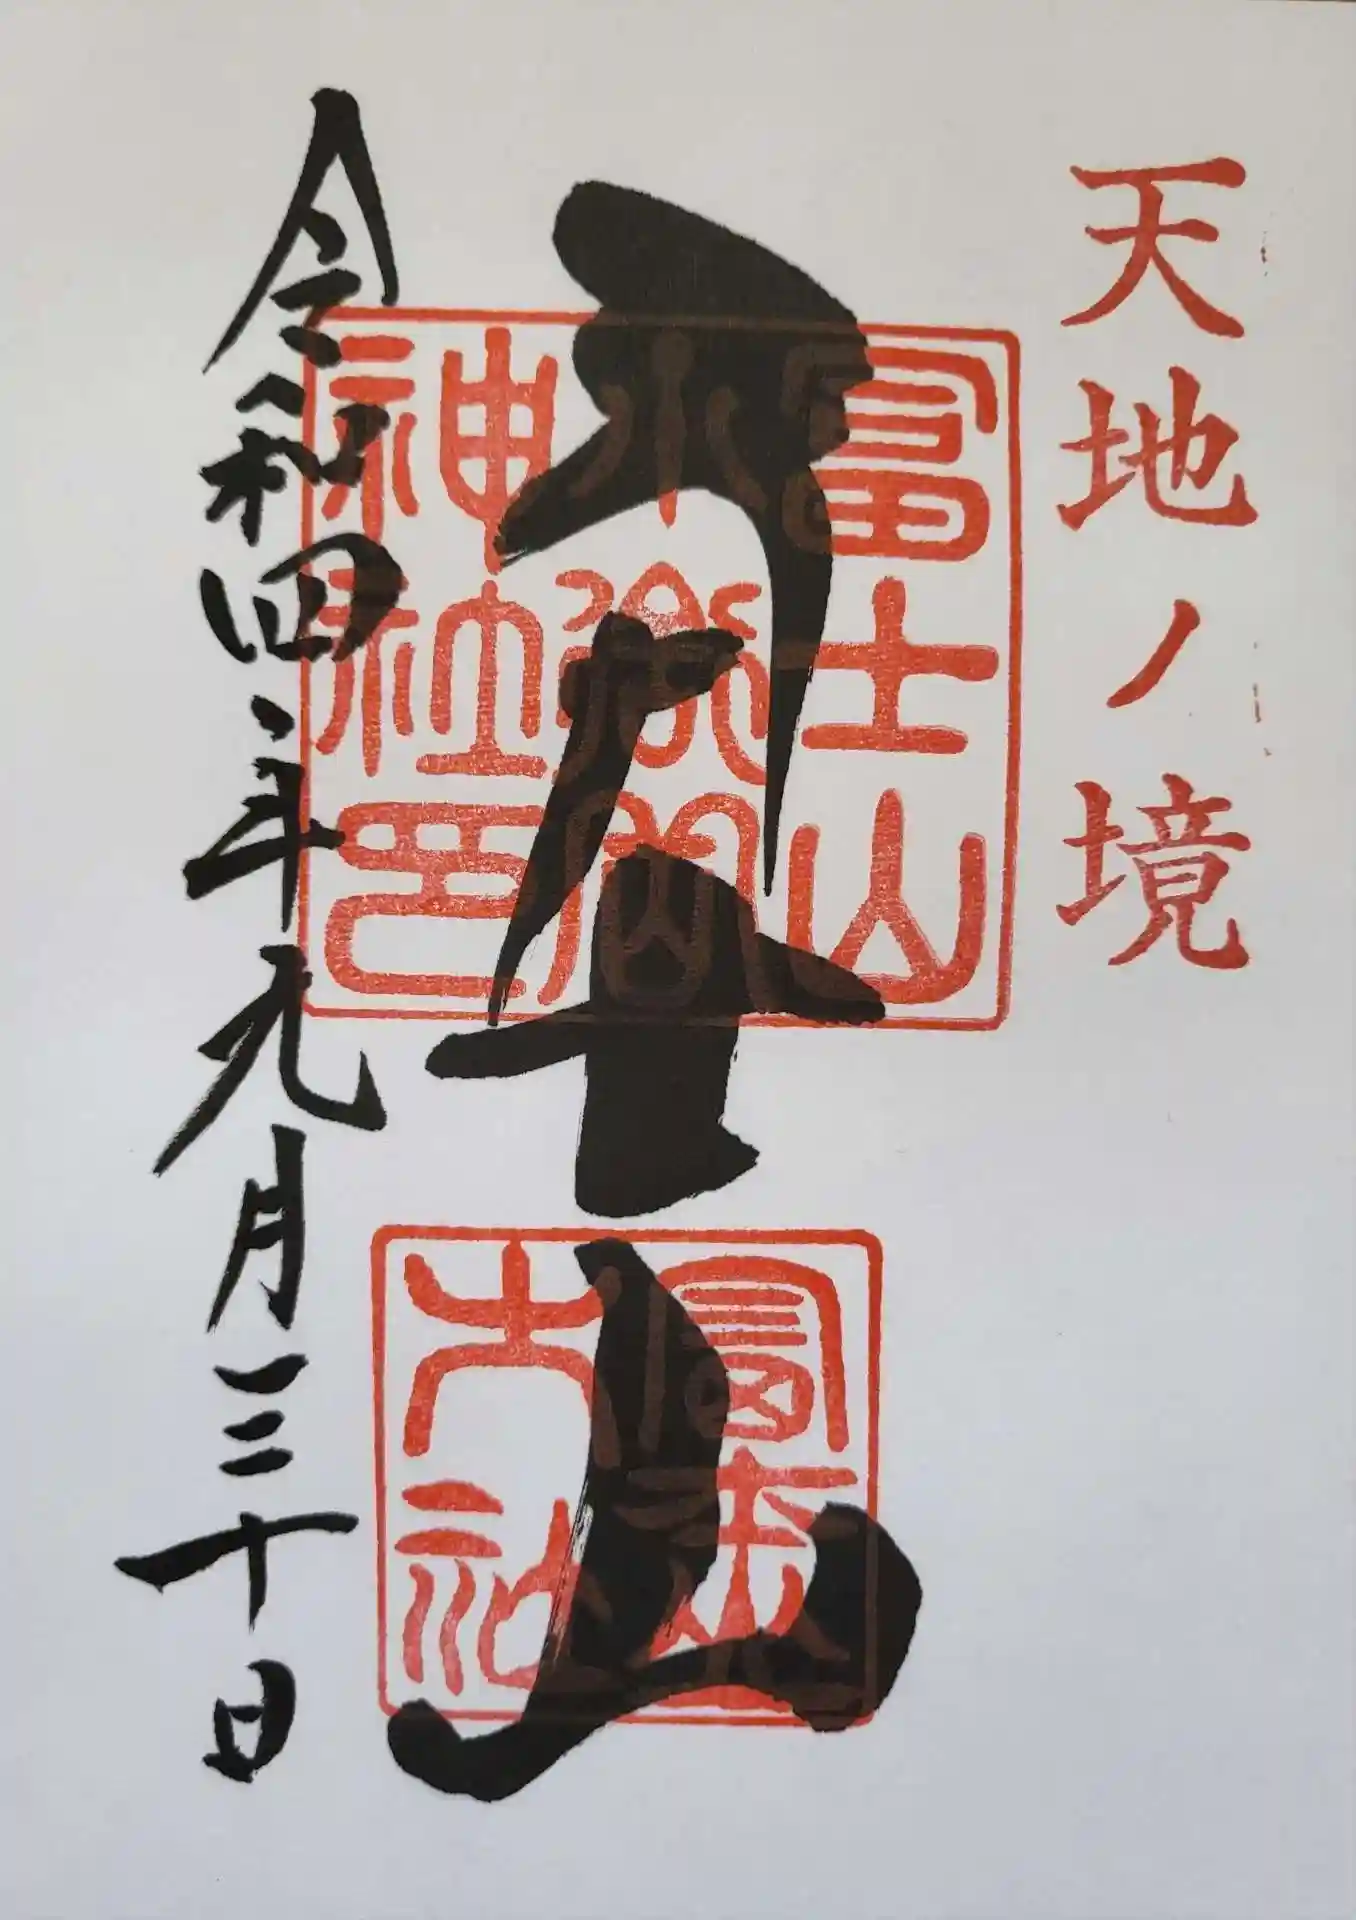 天地ノ境
冨士山
富士山
小御嶽
神社印
令和四年九月三十日